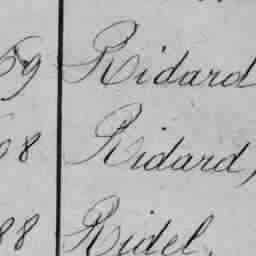 59 Ridard
68 Ridard,
88 Ridel,